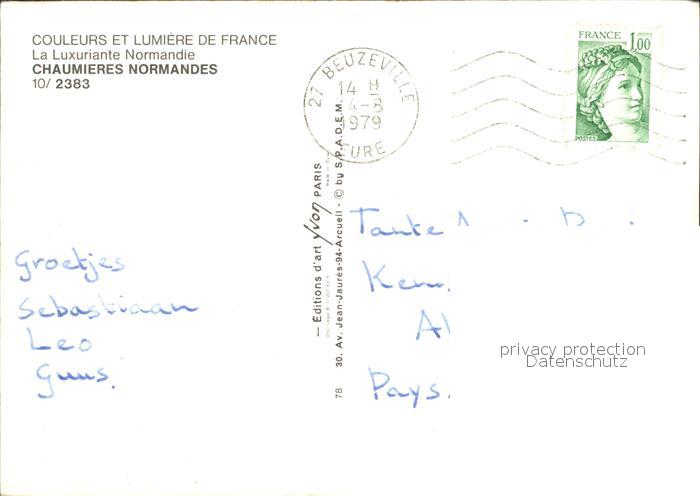 COULEURS ET LUMIÈRE DE FRANCE
La Luxuriante Normandie
CHAUMIERES NORMANDES
10/ 2383
27 BEUZEVILLE
14 H
4-8
1979
EURE
FRANCE
1,00
POSTES
Groetjes
Sebastiaan
Leo
Guus.
— Editions d'art yvon PARIS
30. Av. Jean-Jaurès-94-Arcueil - © by S.P.A.D.E.M.
78
Tante
Pays.
privacy protection
Datenschutz